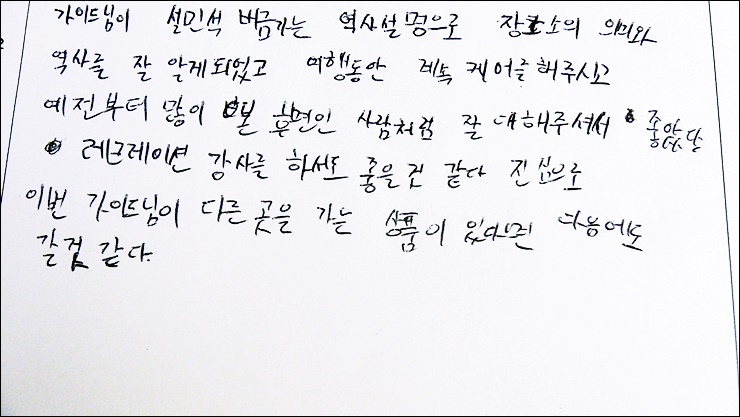 가이드님이 설민석 버금가는 역사설명으로 장소의 의미와
역사를 잘 알게되었고 여행동안 계속 케어를해주시고
예전부터 많이 본 사람처럼 잘 대해주셔서 좋았단
레크레이션 강사를 하셔도 좋을것 같다 진심으로
이번 가이드님이 다른 곳을 가는 상품이 있다면 다음에도
갈것 같다.